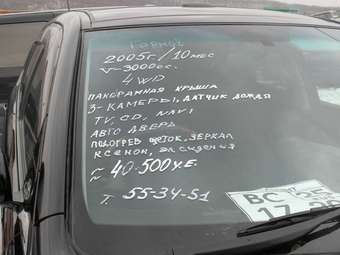 2005г/10 мес
V-3000сс.
4WD
ПАНОРАМНАЯ КРЫША
3-КАМЕРЫ, ДАТЧИК ДОЖДЯ
TV, CD, NAVI
АВТО ДВЕРЬ
ПОДОГРЕВ ЩЕТОК, ЗЕРКАЛ
КСЕНОН, ЭЛ. СИДЕНИЯ
~ 40-500 у.е.
Т. 55-34-51
ВС